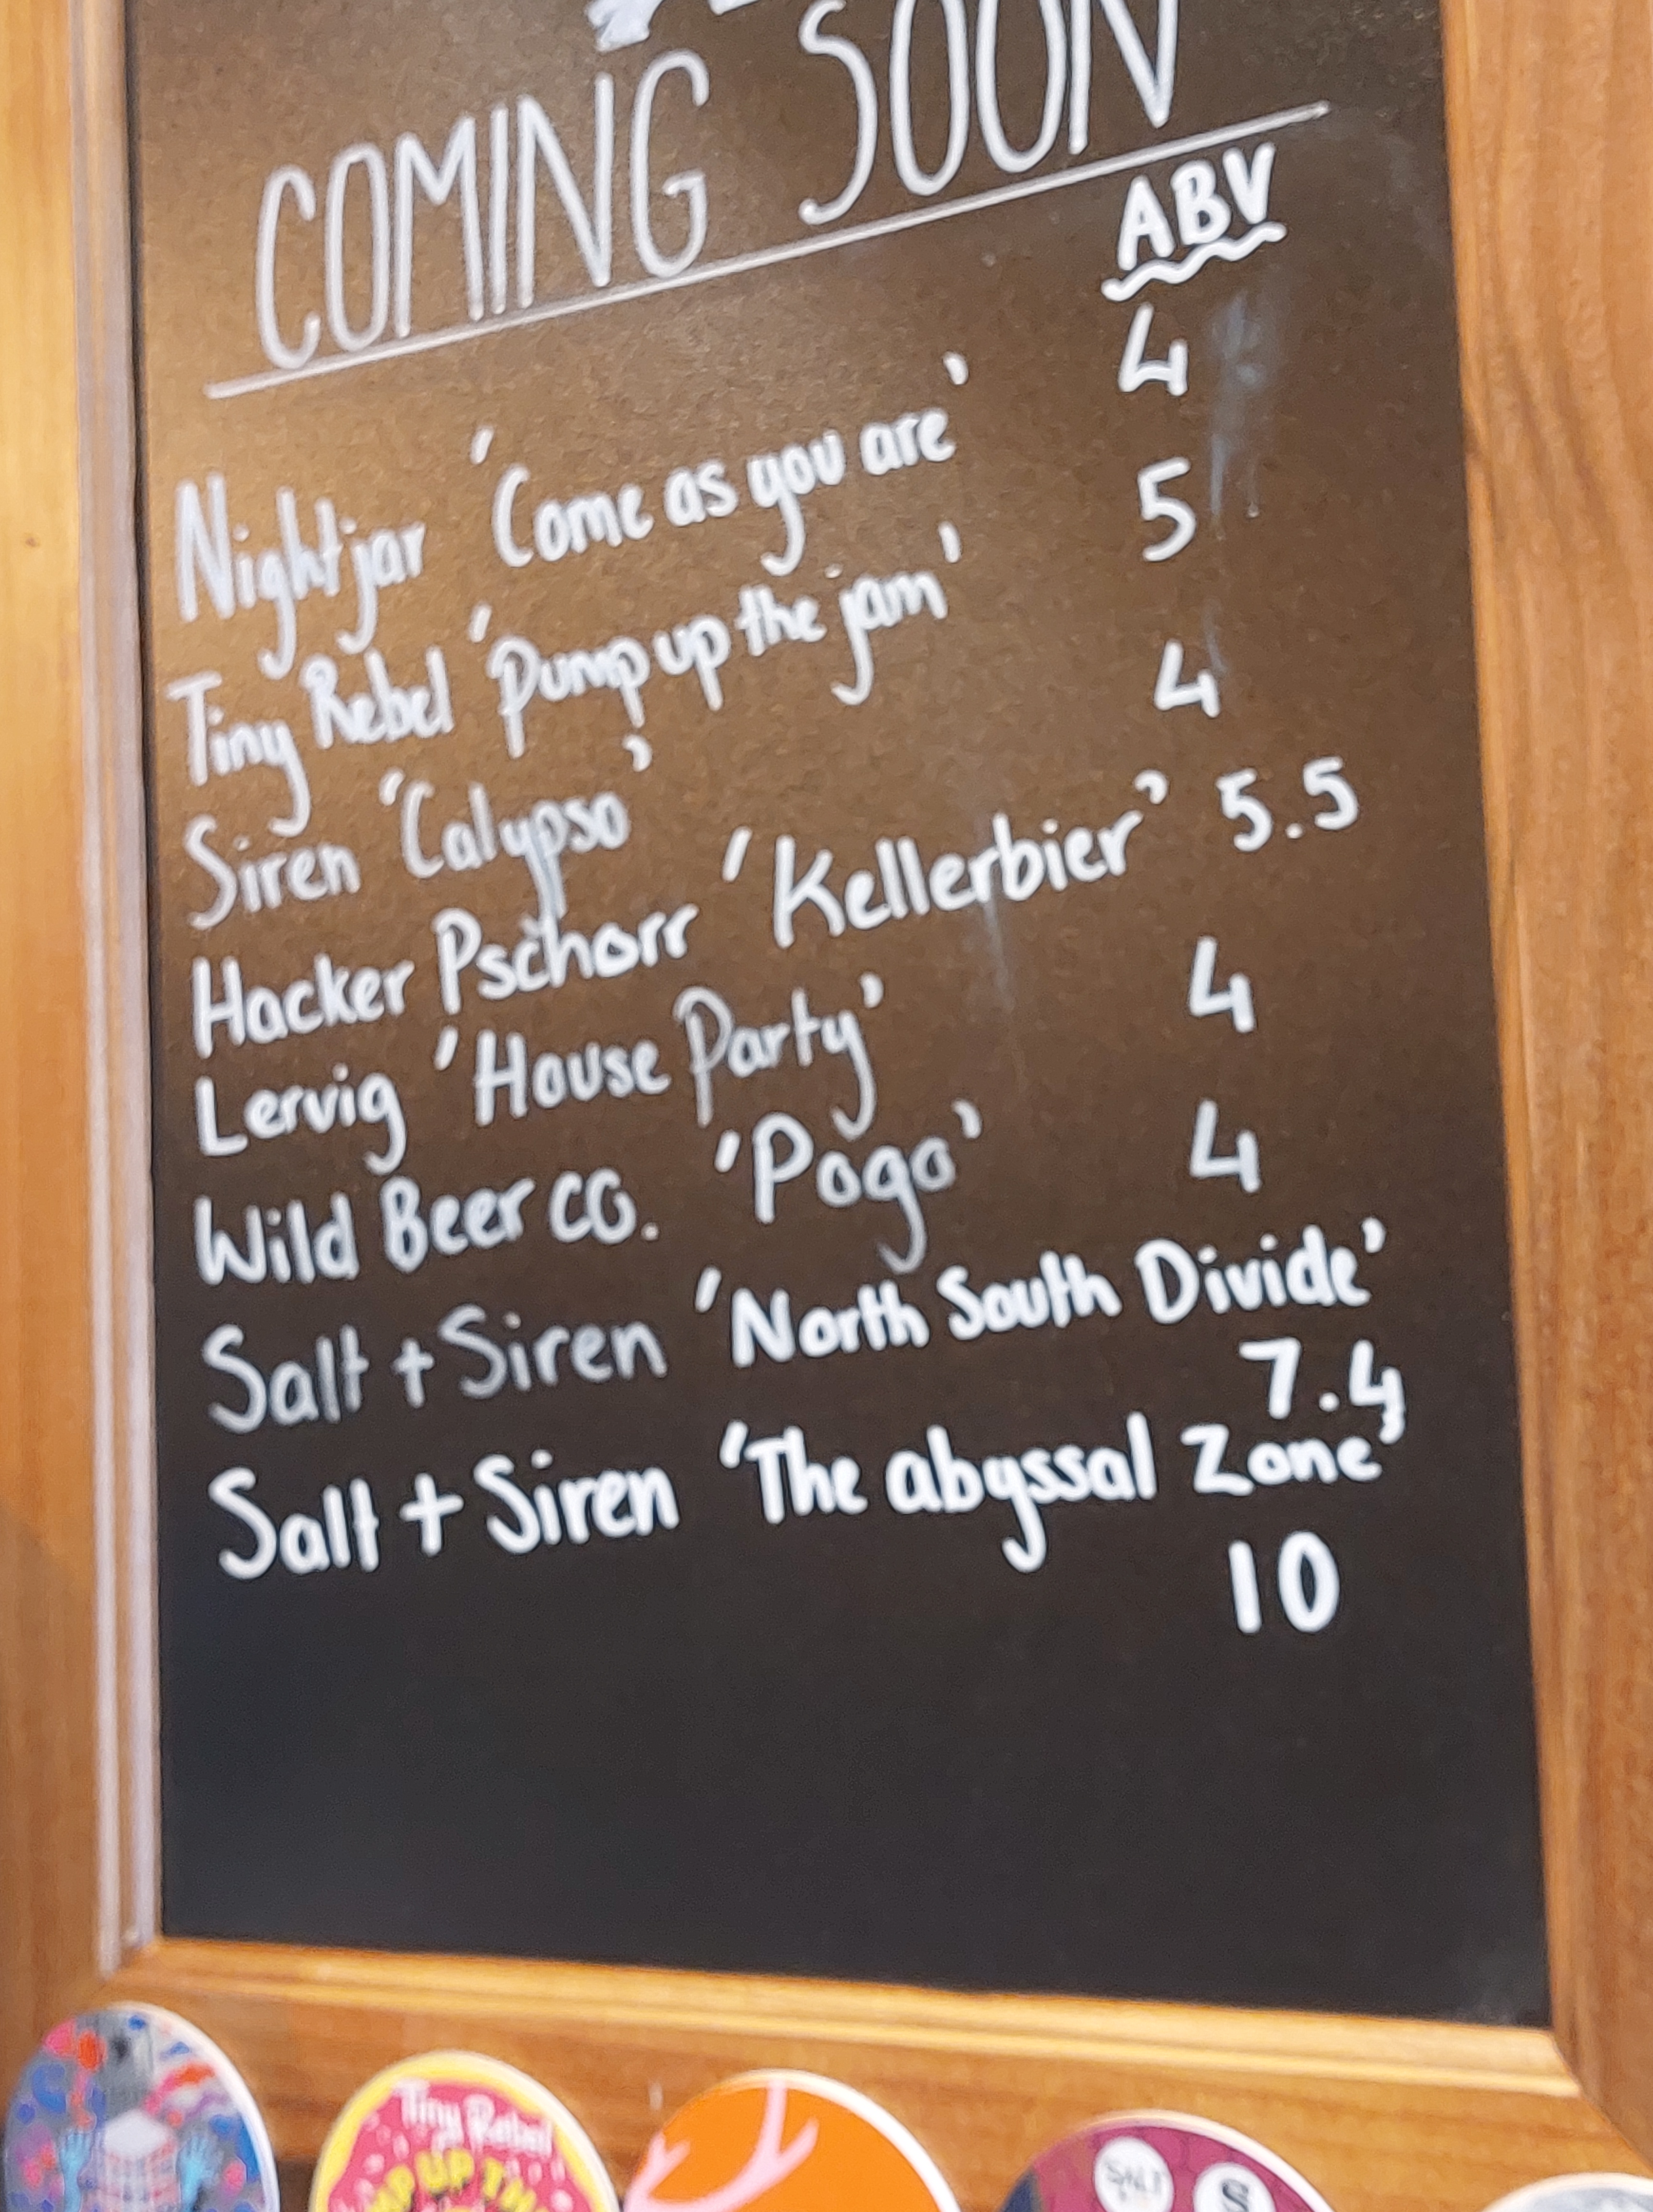 COMING SOON
ABV
Nightjar 'Come as you are' 4
Tiny Rebel 'Pump up the jam' 5
Siren 'Calypso' 4
Hacker Pschorr 'Kellerbier' 5.5
Lervig 'House Party' 4
Wild Beer CO. 'Pogo' 4
Salt + Siren 'North South Divide'
7.4
Salt + Siren 'The abyssal Zone'
10
Tiny Rebel
UP
SALT
S